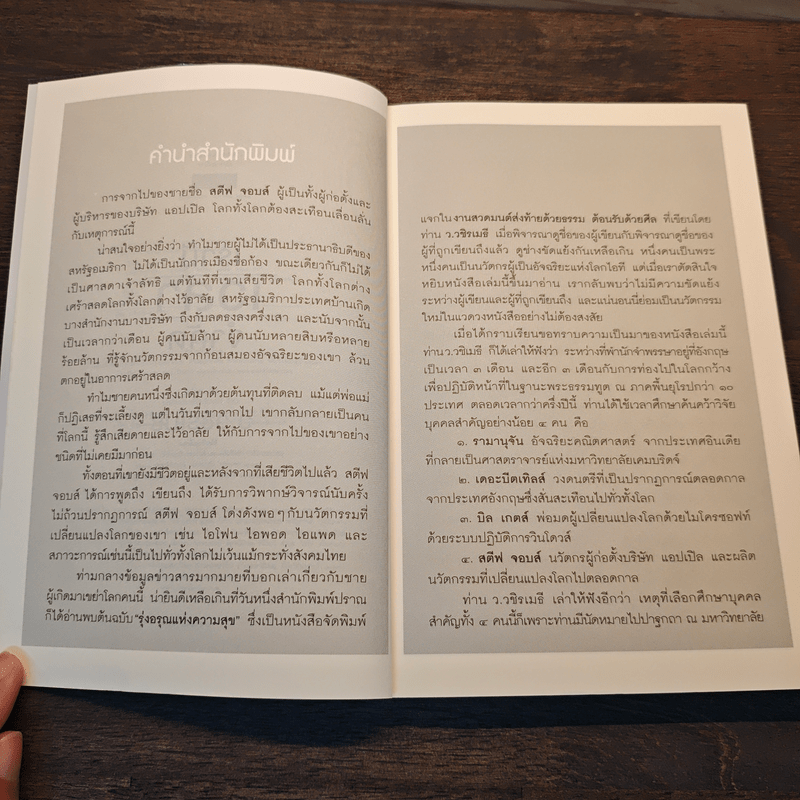 คำนำสำนักพิมพ์
การจากไปของชายชื่อ สตีฟ จอบส์ ผู้เป็นทั้งผู้ก่อตั้งและ
ผู้บริหารของบริษัท แอปเปิล โลกทั้งโลกต้องสะเทือนเลื่อนลั่น
กับเหตุการณ์นี้
น่าสนใจอย่างยิ่งว่า ทำไมชายผู้ไม่ได้เป็นประธานาธิบดีของ
สหรัฐอเมริกา ไม่ได้เป็นนักการเมืองชื่อก้อง ขณะเดียวกันก็ไม่ได้
เป็นศาสดาเจ้าลัทธิ แต่ทันทีที่เขาเสียชีวิต โลกทั้งโลกต่าง
เศร้าสลดโลกทั้งโลกต่างไว้อาลัย สหรัฐอเมริกาประเทศบ้านเกิด
บางสำนักงานบางบริษัท ถึงกับลดธงลงครึ่งเสา และนับจากนั้น
เป็นเวลากว่าเดือน ผู้คนนับล้าน ผู้คนนับหลายสิบหรือหลาย
ร้อยล้าน ที่รู้จักนวัตกรรมจากก้อนสมองอัจฉริยะของเขา ล้วน
ตกอยู่ในอาการเศร้าสลด
ทำไมชายคนหนึ่งซึ่งเกิดมาด้วยต้นทุนที่ติดลบ แม้แต่พ่อแม่
ก็ปฏิเสธที่จะเลี้ยงดู แต่ในวันที่เขาจากไป เขากลับกลายเป็นคน
ที่โลกนี้ รู้สึกเสียดายและไว้อาลัย ให้กับการจากไปของเขาอย่าง
ชนิดที่ไม่เคยมีมาก่อน
ทั้งตอนที่เขายังมีชีวิตอยู่และหลังจากที่เสียชีวิตไปแล้ว สตีฟ
จอบส์ ได้การพูดถึง เขียนถึง ได้รับการวิพากษ์วิจารณ์นับครั้ง
ไม่ถ้วนปรากฏการณ์ สตีฟ จอบส์ โด่งดังพอๆ กับนวัตกรรมที่
เปลี่ยนแปลงโลกของเขา เช่น ไอโฟน ไอพอด ไอแพด และ
สภาวะการณ์เช่นนี้เป็นไปทั่วทั้งโลกไม่เว้นแม้กระทั่งสังคมไทย
ท่ามกลางข้อมูลข่าวสารมากมายที่บอกเล่าเกี่ยวกับชาย
ผู้เกิดมาเขย่าโลกคนนี้ น่ายินดีเหลือเกินที่วันหนึ่งสำนักพิมพ์ปราณ
ก็ได้อ่านพบต้นฉบับ "รุ่งอรุณแห่งความสุข" ซึ่งเป็นหนังสือจัดพิมพ์
แจกใน งานสวดมนต์ส่งท้ายด้วยธรรม ต้อนรับด้วยศีล ที่เขียนโดย
ท่าน ว.วชิรเมธี เมื่อพิจารณาดูชื่อของผู้เขียนกับพิจารณาดูชื่อของ
ผู้ที่ถูกเขียนถึงแล้ว ดูช่างขัดแย้งกันเหลือเกิน หนึ่งคนเป็นพระ
หนึ่งคนเป็นนวัตกรผู้เป็นอัจฉริยะแห่งโลกไอที แต่เมื่อเราตัดสินใจ
หยิบหนังสือเล่มนี้ขึ้นมาอ่าน เรากลับพบว่าไม่มีความขัดแย้ง
ระหว่างผู้เขียนและผู้ที่ถูกเขียนถึง และแน่นอนนี่ย่อมเป็นนวัตกรรม
ใหม่ในแวดวงหนังสืออย่างไม่ต้องสงสัย
เมื่อได้กราบเรียนขอทราบความเป็นมาของหนังสือเล่มนี้
ท่านว.วชิรเมธี ก็ได้เล่าให้ฟังว่า ระหว่างที่พำนักจำพรรษาอยู่ที่อังกฤษ
เป็นเวลา ๓ เดือน และอีก ๓ เดือนกับการท่องไปในโลกกว้าง
เพื่อปฏิบัติหน้าที่ในฐานะพระธรรมทูต ณ ภาคพื้นยุโรปกว่า ๑๐
ประเทศ ตลอดเวลากว่าครึ่งปีนี้ ท่านได้ใช้เวลาศึกษาค้นคว้าวิจัย
บุคคลสำคัญอย่างน้อย ๔ คน คือ
๑. รามานุจัน อัจฉริยะคณิตศาสตร์ จากประเทศอินเดีย
ที่กลายเป็นศาสตราจารย์แห่งมหาวิทยาลัยเคมบริดจ์
๒. เดอะบีตเทิลส์ วงดนตรีที่เป็นปรากฏการณ์ตลอดกาล
จากประเทศอังกฤษซึ่งสั่นสะเทือนไปทั่วทั้งโลก
๓. บิล เกตส์ พ่อมดผู้เปลี่ยนแปลงโลกด้วยไมโครซอฟท์
ด้วยระบบปฏิบัติการวินโดวส์
๔. สตีฟ จอบส์ นวัตกรผู้ก่อตั้งบริษัท แอปเปิล และผลิต
นวัตกรรมที่เปลี่ยนแปลงโลกไปตลอดกาล
ท่าน ว.วชิรเมธี เล่าให้ฟังอีกว่า เหตุที่เลือกศึกษาบุคคล
สำคัญทั้ง ๔ คนนี้ก็เพราะท่านมีนัดหมายไปปาฐกถา ณ มหาวิทยาลัย